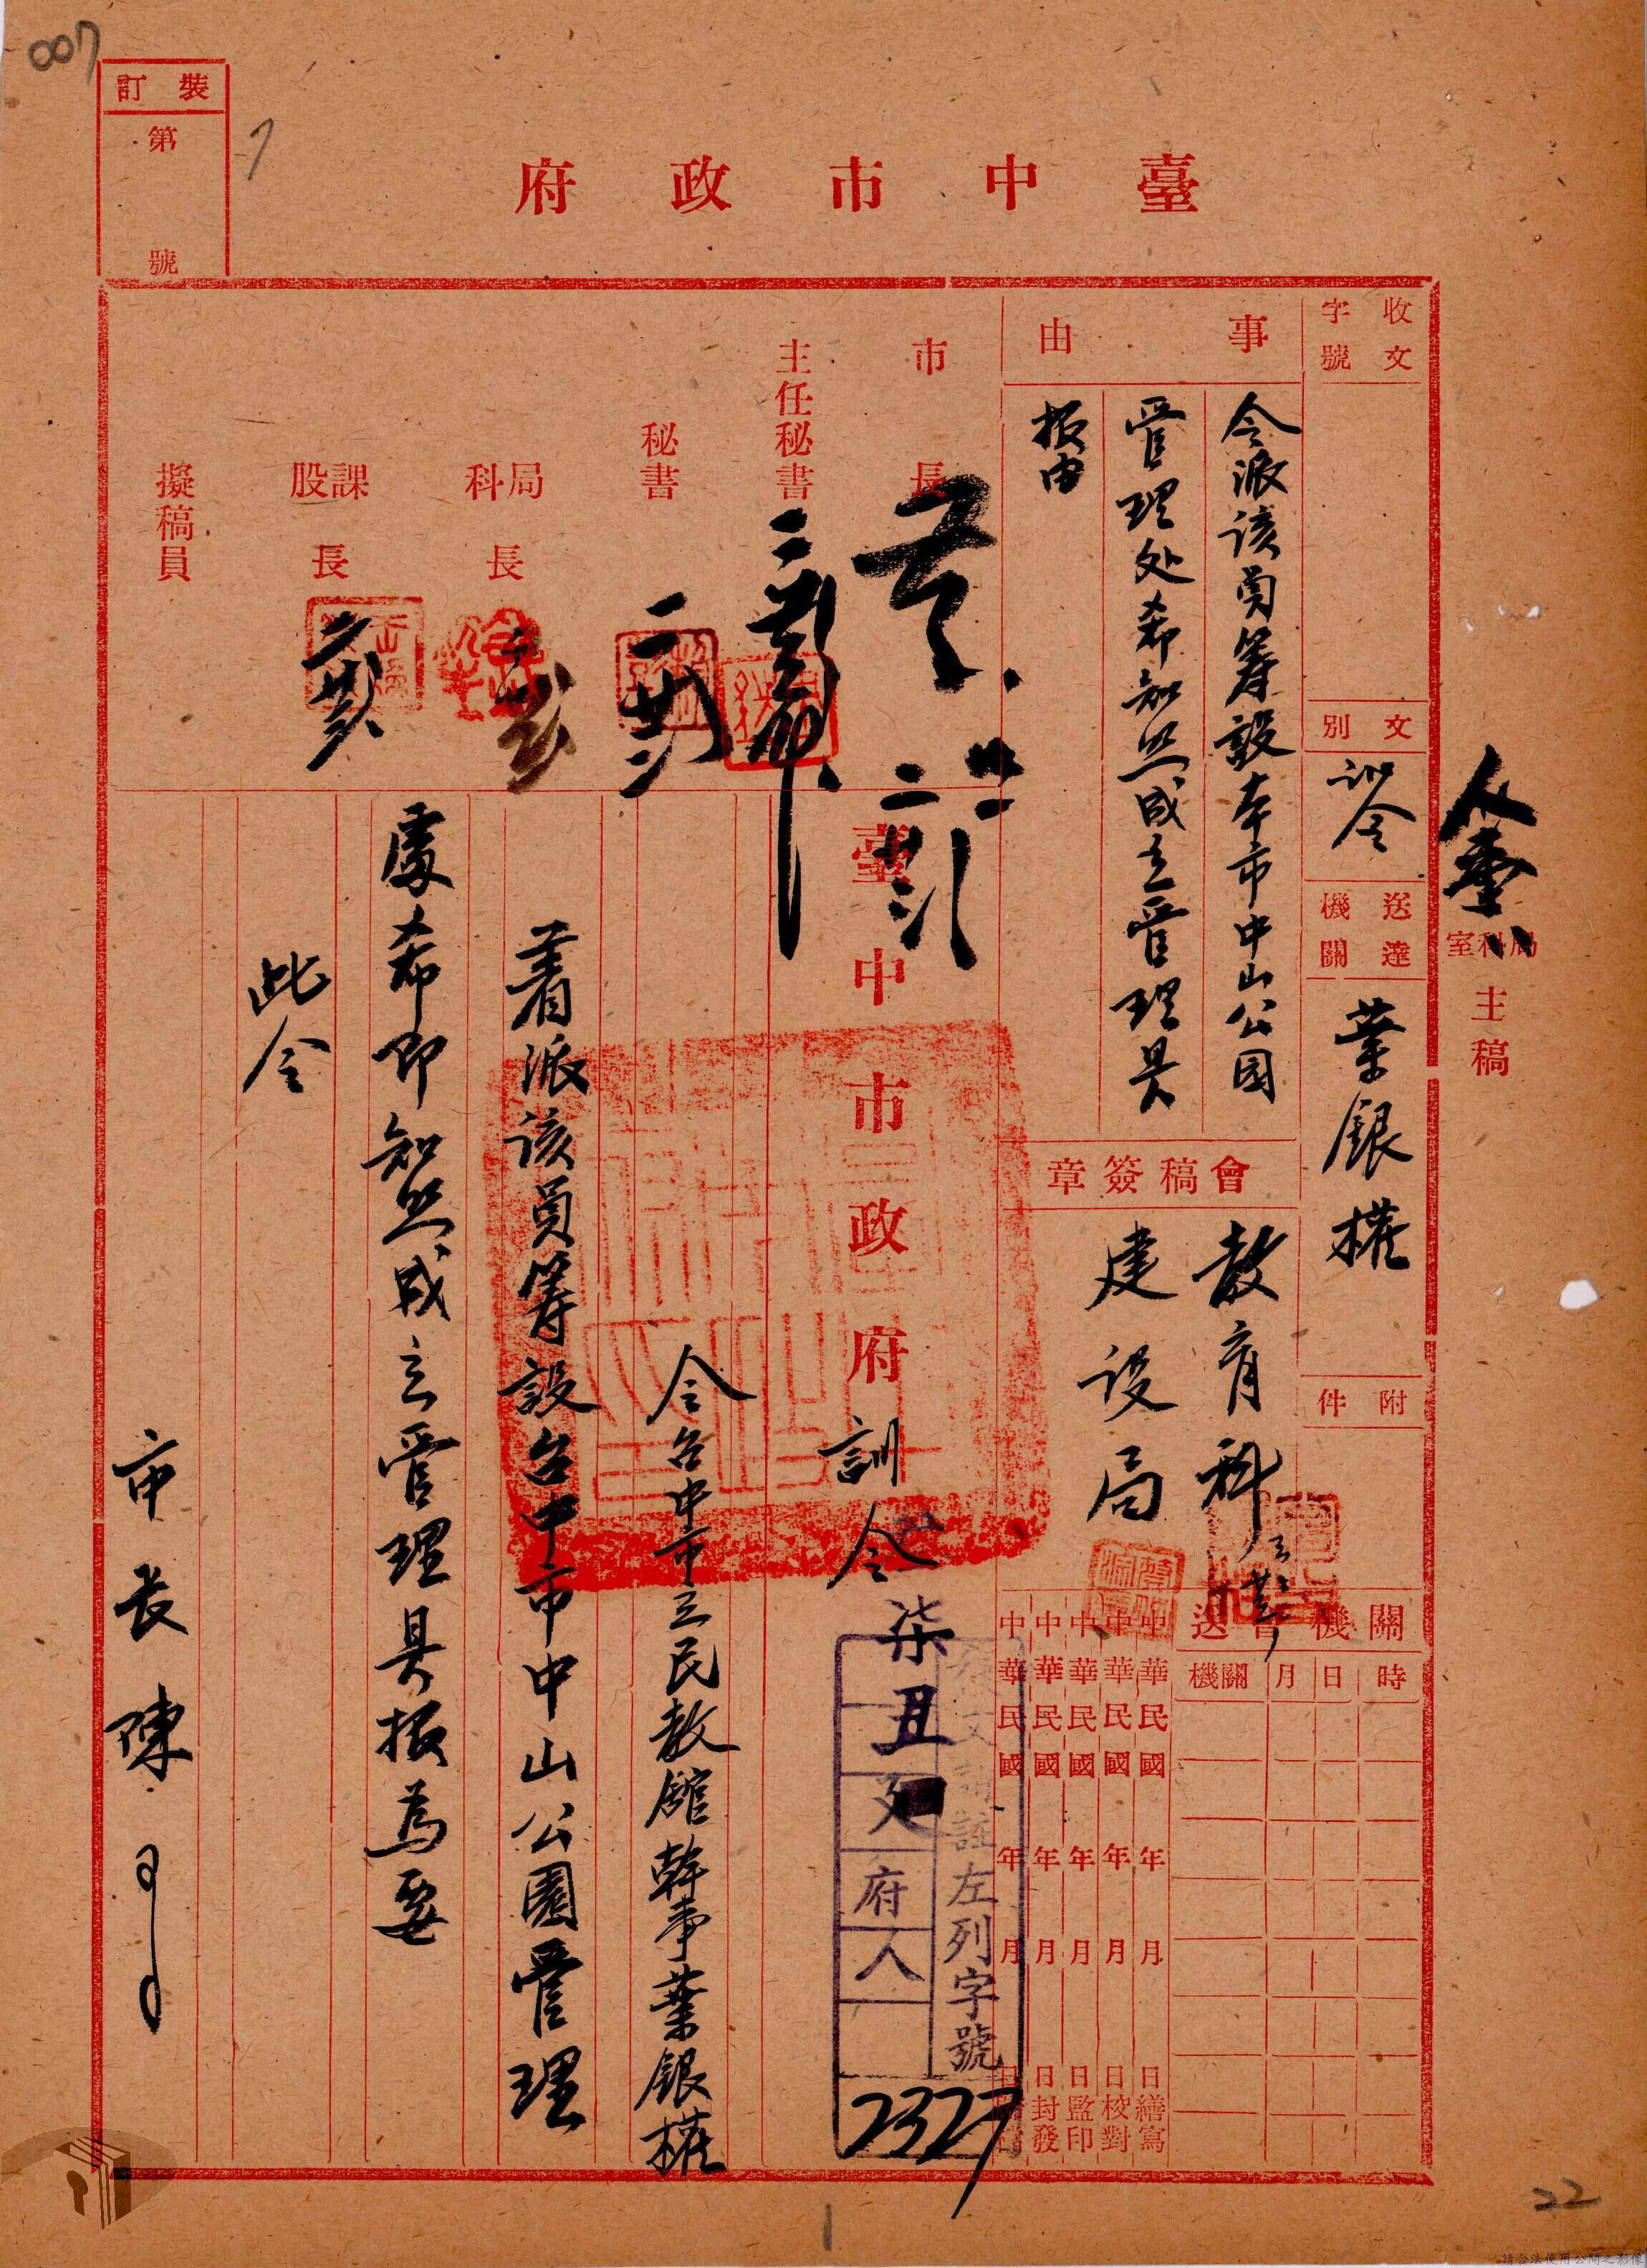 007
裝訂
第
號
臺中市政府
收文
字號
文別
訓令
送達
機關
葉銀權
附件
事由
令派該員筹設本市中山公园
管理处希知照成立管理具
报由
會稿簽章
教育科
建设局
局科室
主稿
市長
主任秘書
秘書
局科長
課股長
擬稿員
關機會送
機關 月 日 時
中華民國 年 月 日繕寫
中華民國 年 月 日校對
中華民國 年 月 日監印
中華民國 年 月 日封發
中華民國 年 月 日
臺中市政府訓令
柒丑
府人
2327
左列字號
令台中市立民教館幹事葉銀權
著派該員筹設台中市中山公園管理
處希即知照成立管理具报為要
此令
市長陳
22